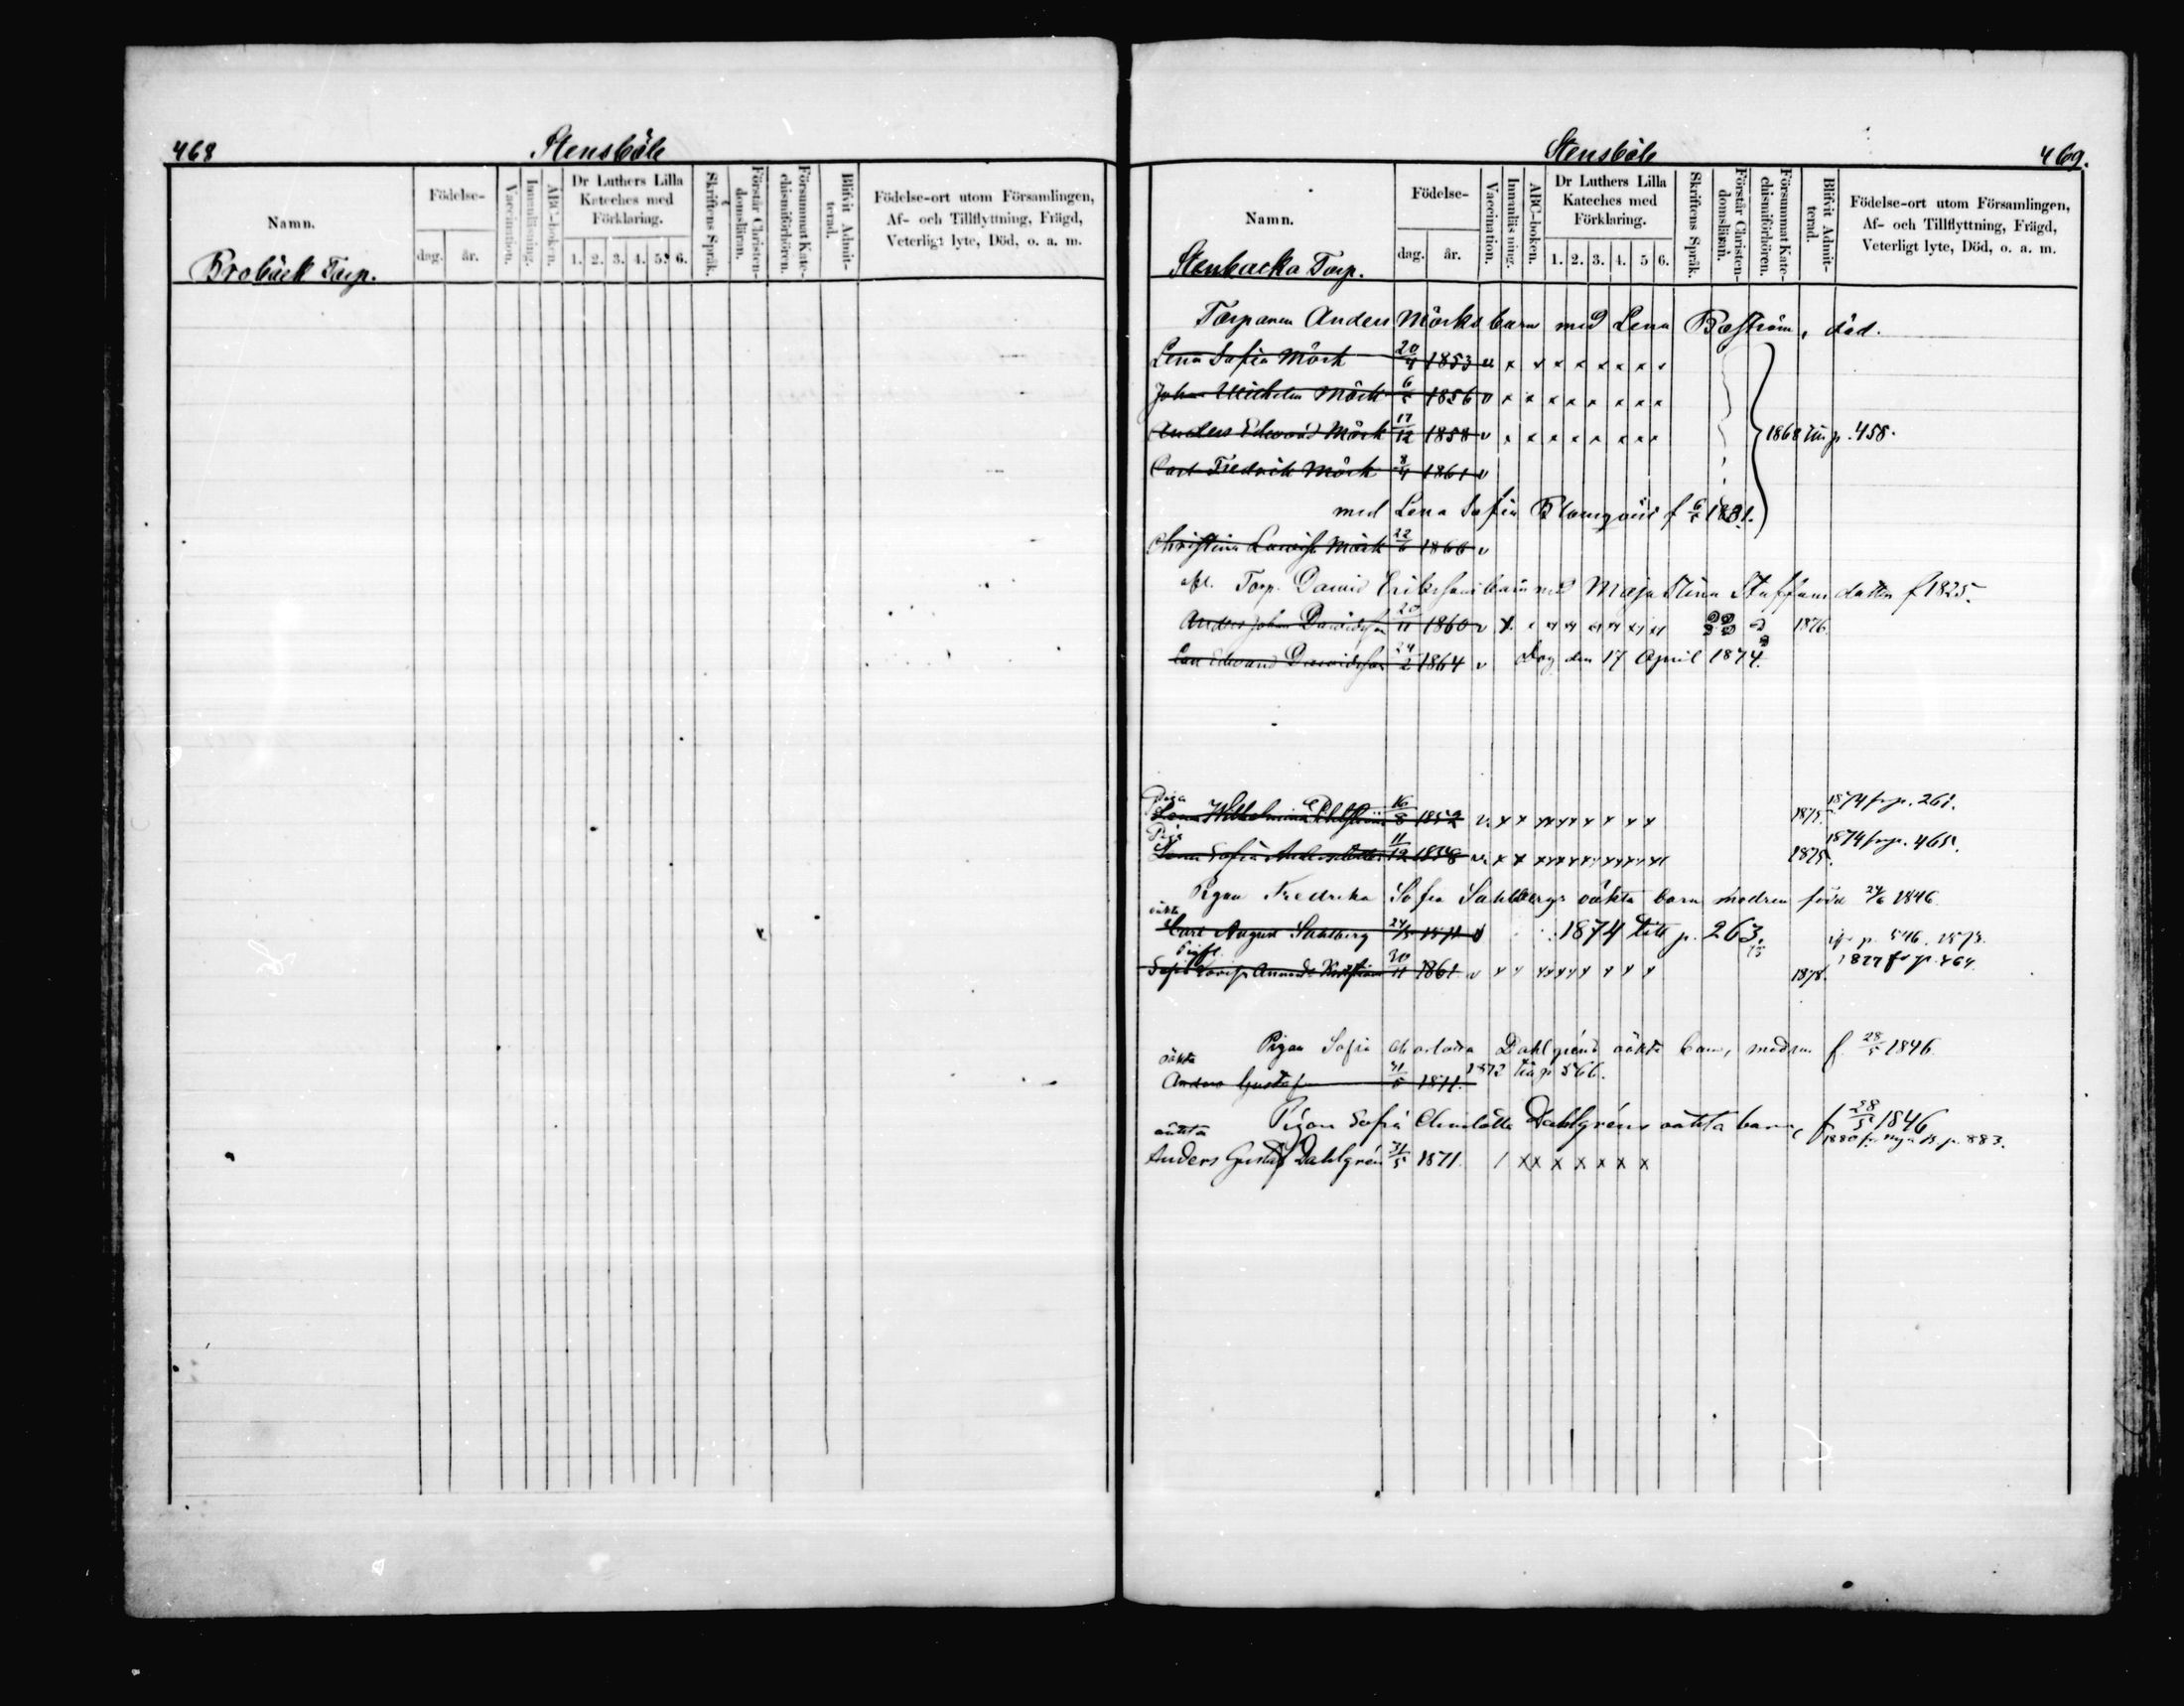 468
Stensböle
Namn.
Födelse-
dag.
år.
Vaccination.
Innanläsning.
ABC-boken.
Dr Luthers Lilla Kateches med Förklaring.
1. 2. 3. 4. 5. 6.
Skriftens Språk.
Förstår Christendomsläran.
Försummat Katechismiförhören.
Blifvit Admitterad.
Födelse-ort utom Församlingen, Af- och Tillflyttning, Frägd, Veterligt lyte, Död, o. a. m.
Brobäck Torp.
Stensböle
469.
Namn.
Födelse-
dag.
år.
Vaccination.
Innanläsning.
ABC-boken.
Dr Luthers Lilla Kateches med Förklaring.
1. 2. 3. 4. 5 6.
Skriftens Språk.
Förstår Christendomsläran.
Försummat Katechismiförhören.
Blifvit Admitterad.
Födelse-ort utom Församlingen, Af- och Tillflyttning, Frägd, Veterligt lyte, Död, o. a. m.
Stenbacka Torp.
Torparen Anders Mörks barn med Lena Boström, död.
Lena Sofia Mörk 20/4 1853 v x x x x x x x x x
Johan Wilhelm Mörk 1856 v x x x x x x x x
Anders Edward Mörk 17/12 1858 v x x x x x x x x
1868 till p. 458.
Carl Fredrik Mörk 8/4 1861 v
med Lena Sofia Blomqvist f 1831.
Christina Lovisa Mörk 22/6 1860 v
afl. Torp. David Erikssons barn med Maja Stina Staffansdotter f 1825.
Anders Johan Davidsson 20/11 1860 v 1876
Carl Edvard Davidsson 24/2 1864 v dog den 17 April 1874.
Piga
Lena Wilhelmina 16/8 1852 v x x x x x x x x x x
1875.
1874 fr p. 261.
Piga
Lena Sofia Andersdotter 11/12 1858 x x x x x x x x x x
1875.
1874 fr p. 465.
Pigan Fredrika Sofia Sahlbergs oäkta barn modren född 24/6 1846.
oäkta
Carl August Sahlberg 24/5 1871 v 1874 till p. 263.
p. 546. 1873.
Sofia Lovisa Amanda 30/11 1861 v x x x x x x x x x
1878.
1877 fr p. 464
Pigan Sofia Charlotta Dahlgréns oäkta barn, modren f. 28/5 1846.
oäkta
Anders Gustaf 31/5 1871. 1872 till p 566.
Pigan Sofia Charlotta Dahlgréns oäkta barn, f 28/5 1846
oäkta
1880 fr nya B. p. 883.
Anders Gustaf Dahlgrén 31/5 1871. / x x x x x x x x